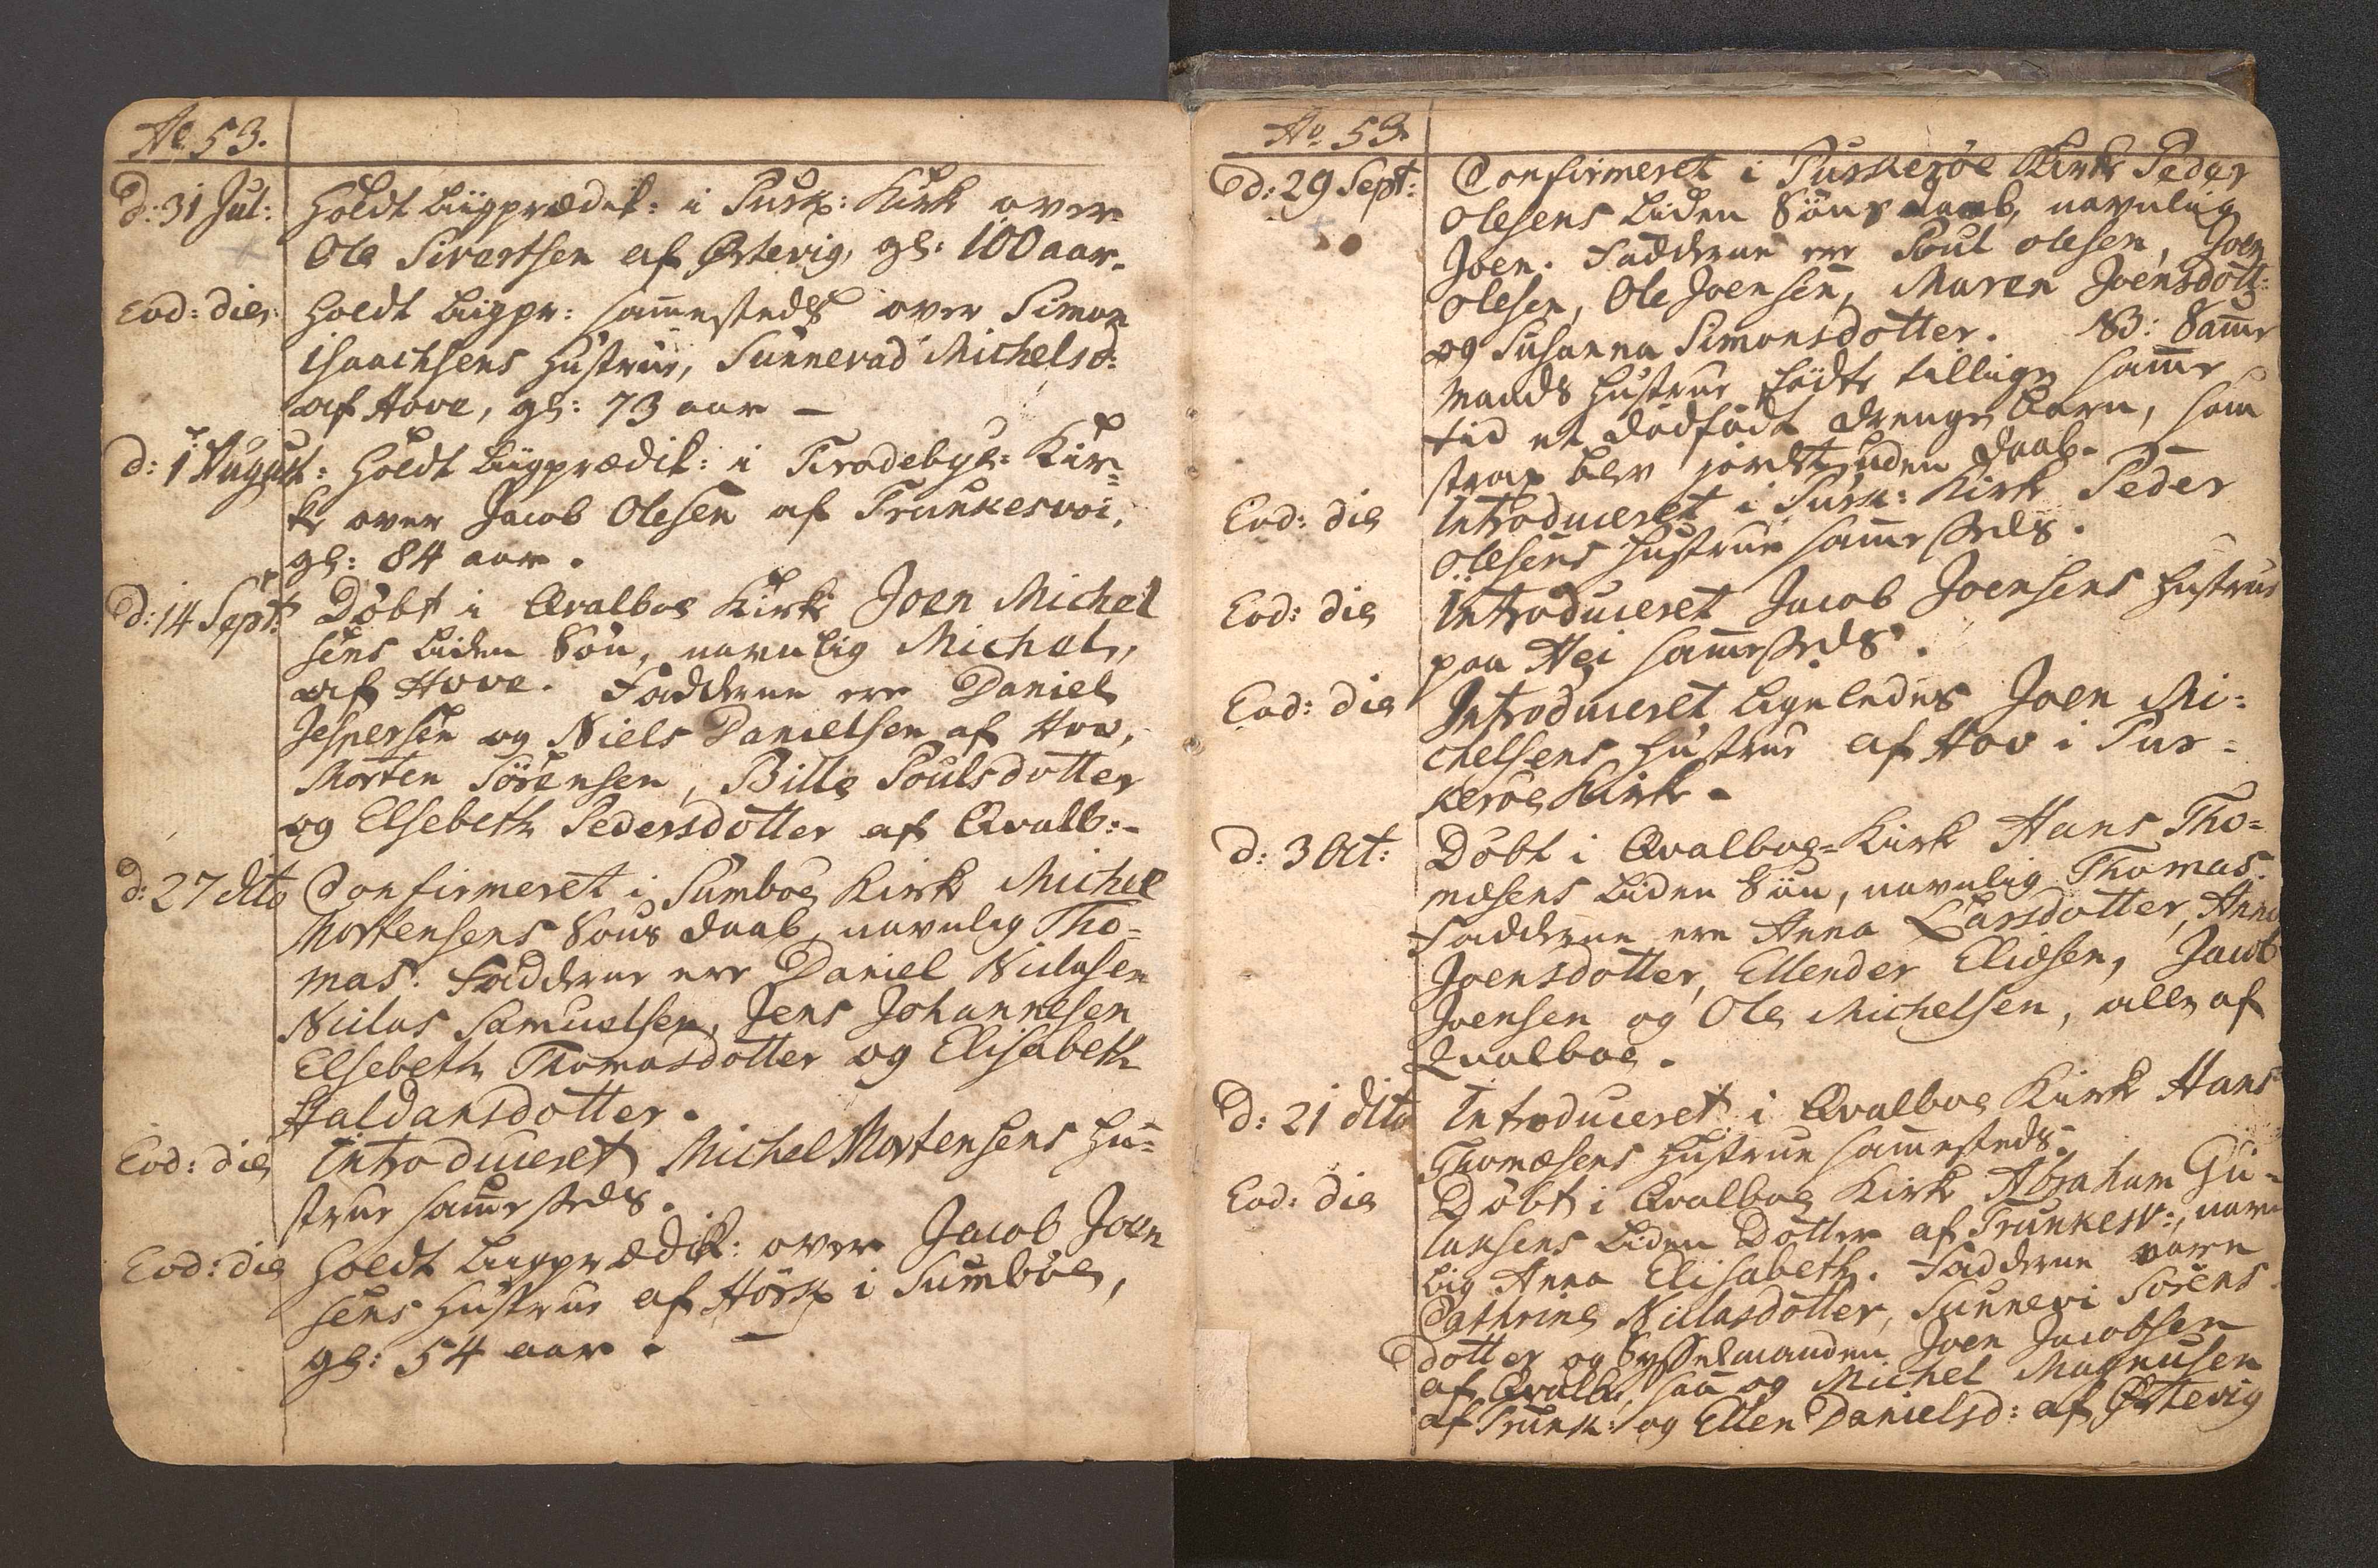 Ao 53.
d: 31 Jul: Holdt Liigprædik: i Pork: Kirk over
Ole Sivertsen af Østevig, gl: 100 aar.
Eod: die: Holdt Liigpr: sammesteds over Simon
Isaachsens Hustrue, Sunnevad Michelsd:
af Hove, gl: 73 aar —
d: 1 August: Holdt Liigprædik: i Frodebye= Kir=
ke over Jacob Olesen af Trunkesvoi,
gl: 84 aar.
d: 14 Sept: Döbt i Qvalboe Kirke Joen Michel
sens liden Sön, navnlig Michel,
af Hove. Fadderne ere Daniel
Jespersen og Niels Danielsen af Hov,
Morten Sörensen, Bille Poulsdotter
og Elsebeth Pedersdotter af Qvalb:-
d: 27 dito Confirmeret i Sumböe Kirke Michel
Mortensens Söns daab, navnlig Tho=
mas. Fadderne ere Daniel Niclasen
Niclas Samuelsen, Jens Johannesen
Elsebeth Thomasdotter og Elisabeth
Haldansdotter.
Eod: die Introduceret Michel Mortensens Hu=
strue sammesteds.
Eod: die Holdt Liigprædik: over Jacob Joen
sens Hustrue af Hörg i Sumböe,
gl: 54 aar. —
Ao 53.
d: 29 Sept: Confirmeret i Purkeröe Kirke Peder
Olesens liden Söns daab, navnlig
Joen. Fadderne ere Poul Olesen, Joen
Olesen, Ole Joensen, Maren Joensdott:
og Susanna Simonsdotter. NB: Samme
Mands Hustrue födte tillige samme
tid et dödfödt Drenge Barn, som
strax blev jordet uden Daab.
Eod: die Introduceret i Purk: Kirke Peder
Olesens Hustrue sammesteds.
Eod: die Introduceret Jacob Joensens Hustrue
paa Hei sammesteds.
Eod: die Introduceret ligeledes Joen Mi=
chelsens Hustrue af Hov i Pur=
keröe Kirke.
d: 3 Oct: Döbt i Qvalboe= Kirke Hans Tho=
mæsens liden Sön, navnlig Thomas.
Fadderne ere Anna Larsdotter, Anna
Joensdotter, Ellender Eliæsen, Jacob
Joensen og Ole Michelsen, alle af
Qualboe.
d: 21 dito Introduceret i Qvalboe Kirke Hans
Thomæsens Hustrue sammesteds.
Eod: die Döbt i Qvalboe Kirke Abraham Gu=
lansens liden Dotter af Trunkesv:, navn
lig Anna Elisabeth. Fadderne vare
Cathrine Niclasdotter, Sunnevi Sörens
dotter og Sysselmanden Joen Jacobsen
af Qvalb:, saa og Michel Magnusen
af Trunk: og Ellen Danielsd: af Østevig